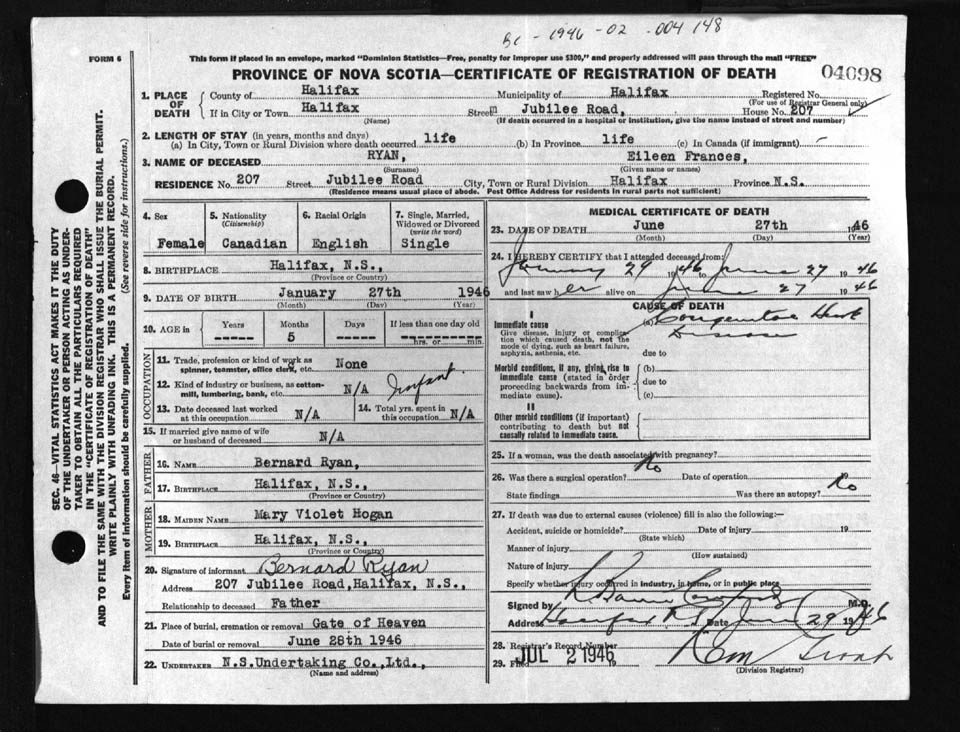 BC - 1946 - 02 - 004148
FORM 6
This form if placed in an envelope, marked "Dominion Statistics—Free, penalty for improper use $300," and properly addressed will pass through the mail "FREE"
PROVINCE OF NOVA SCOTIA—CERTIFICATE OF REGISTRATION OF DEATH
04098
1. PLACE OF DEATH
County of Halifax Municipality of Halifax Registered No.
(For use of Registrar General only)
If in City or Town Halifax Street Jubilee Road, House No. 207
(Name) (If death occurred in a hospital or institution, give the name instead of street and number)
2. LENGTH OF STAY (in years, months and days)
(a) In City, Town or Rural Division where death occurred life (b) In Province life (c) In Canada (if immigrant) -
3. NAME OF DECEASED RYAN, Eileen Frances,
(Surname) (Given name or names)
RESIDENCE No. 207 Street Jubilee Road City, Town or Rural Division Halifax Province N.S.
(Residence means usual place of abode. Post Office Address for residents in rural parts not sufficient)
4. Sex
Female
5. Nationality
(Citizenship)
Canadian
6. Racial Origin
English
7. Single, Married, Widowed or Divorced
(write the word)
Single
8. BIRTHPLACE Halifax, N.S.,
(Province or Country)
9. DATE OF BIRTH January 27th 1946
(Month) (Day) (Year)
10. AGE in
Years Months Days If less than one day old
----- 5 ----- -----
hrs. or min.
OCCUPATION
11. Trade, profession or kind of work as spinner, teamster, office clerk, etc. None
12. Kind of industry or business, as cotton-mill, lumbering, bank, etc. N/A Infant
13. Date deceased last worked at this occupation N/A
14. Total yrs. spent in this occupation N/A
15. If married give name of wife or husband of deceased N/A
FATHER
16. NAME Bernard Ryan,
17. BIRTHPLACE Halifax, N.S.,
(Province or Country)
MOTHER
18. MAIDEN NAME Mary Violet Hogan
19. BIRTHPLACE Halifax, N.S.,
(Province or Country)
20. Signature of informant Bernard Ryan
Address 207 Jubilee Road, Halifax, N.S.,
Relationship to deceased Father
21. Place of burial, cremation or removal Gate of Heaven
Date of burial or removal June 28th 1946
22. UNDERTAKER N.S.Undertaking Co.,Ltd.,
(Name and address)
MEDICAL CERTIFICATE OF DEATH
23. DATE OF DEATH June 27th 1946
(Month) (Day) (Year)
24. I HEREBY CERTIFY that I attended deceased from:
January 29 1946 to June 27 1946
and last saw her alive on June 27 1946
CAUSE OF DEATH
I
Immediate cause
Give disease, injury or complication which caused death, not the mode of dying, such as heart failure, asphyxia, asthenia, etc.
(a) Congenital Heart
Disease
due to
Morbid conditions, if any, giving rise to immediate cause (stated in order proceeding backwards from immediate cause).
(b)
due to
(c)
II
Other morbid conditions (if important) contributing to death but not causally related to immediate cause.
25. If a woman, was the death associated with pregnancy?
26. Was there a surgical operation? No Date of operation
State findings Was there an autopsy? No
27. If death was due to external causes (violence) fill in also the following:—
Accident, suicide or homicide? Date of injury 19
(State which)
Manner of injury
(How sustained)
Nature of injury
Specify whether injury occurred in industry, in home, or in public place
Signed by M.D.
Address Halifax N.S. Date June 29 1946
28. Registrar's Record Number
29. Filed JUL 2 1946 19
(Division Registrar)
SEC. 46—VITAL STATISTICS ACT MAKES IT THE DUTY
OF THE UNDERTAKER OR PERSON ACTING AS UNDER-
TAKER TO OBTAIN ALL THE PARTICULARS REQUIRED
IN THE "CERTIFICATE OF REGISTRATION OF DEATH"
AND TO FILE THE SAME WITH THE DIVISION REGISTRAR WHO SHALL ISSUE THE BURIAL PERMIT.
WRITE PLAINLY WITH UNFADING INK. THIS IS A PERMANENT RECORD.
Every item of information should be carefully supplied. (See reverse side for instructions.)